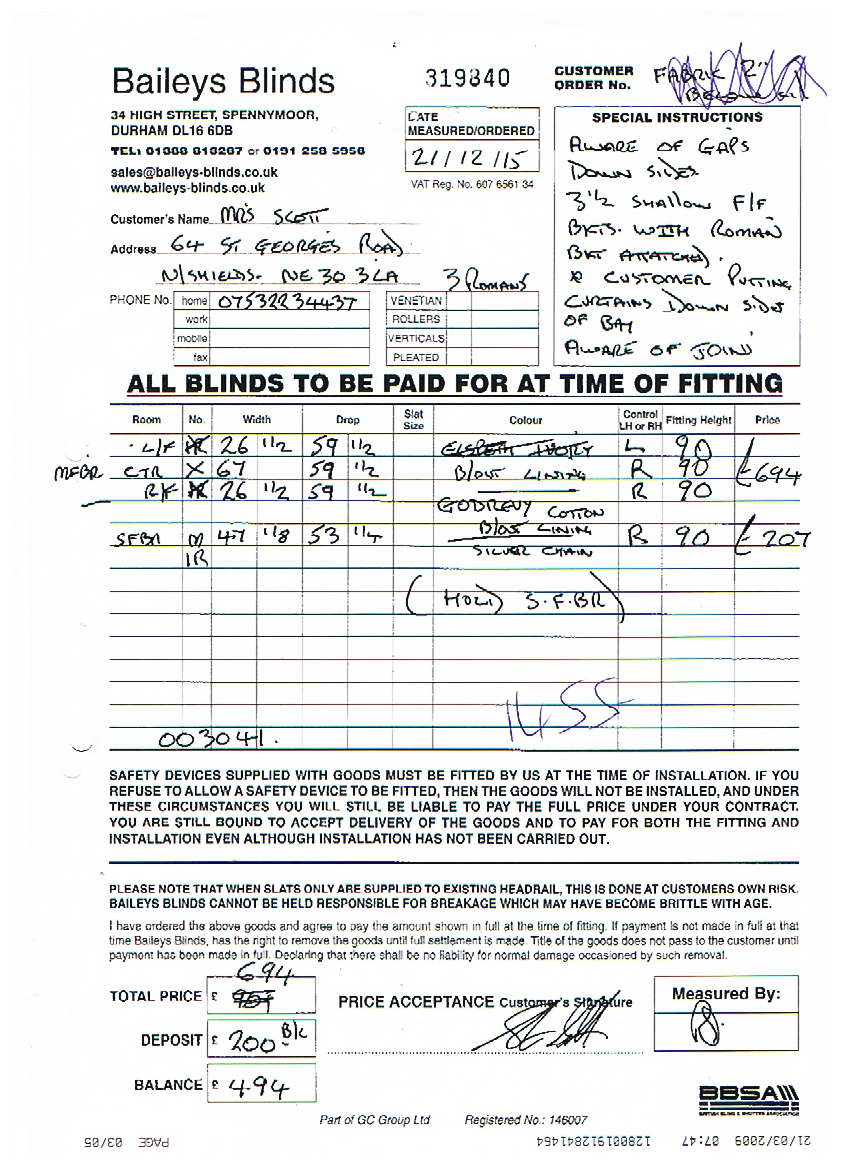 Baileys Blinds
34 HIGH STREET, SPENNYMOOR,
DURHAM DL16 6DB
TEL: 01388 818287 or 0191 258 5956
sales@baileys-blinds.co.uk
www.baileys-blinds.co.uk
319840
CUSTOMER ORDER No. FABRIC 2"
DATE MEASURED/ORDERED
21/12/15
VAT Reg. No. 607 6561 34
SPECIAL INSTRUCTIONS
AWARE OF GAPS
DOWN SIDES
3 1/2 SHALLOW F/F
BKTS. WITH ROMAN
BKT ATTATCHED.
& CUSTOMER PUTTING
CURTAINS DOWN SIDES
OF BAY
AWARE OF JOINS
Customer's Name MRS SCOTT
Address 64 ST GEORGES ROAD
N/SHIELDS. NE30 3LA
3 ROMANS
PHONE No. home 07532234437
work
mobile
fax
VENETIAN
ROLLERS
VERTICALS
PLEATED
ALL BLINDS TO BE PAID FOR AT TIME OF FITTING
Room No. Width Drop Slat Size Colour Control LH or RH Fitting Height Price
L/F 26 1/2 59 1/2 ELSBETH IVORY L 90
MFBR CTR X 67 59 1/2 B/OUT LINING R 90 £694
R/F 26 1/2 59 1/2 R 90
GODREVY COTTON
SFBR M 47 1/8 53 1/4 B/OUT LINING R 90 £207
IR SILVER CHAIN
(HOLD S.F.BR)
1455
003041.
SAFETY DEVICES SUPPLIED WITH GOODS MUST BE FITTED BY US AT THE TIME OF INSTALLATION. IF YOU
REFUSE TO ALLOW A SAFETY DEVICE TO BE FITTED, THEN THE GOODS WILL NOT BE INSTALLED, AND UNDER
THESE CIRCUMSTANCES YOU WILL STILL BE LIABLE TO PAY THE FULL PRICE UNDER YOUR CONTRACT.
YOU ARE STILL BOUND TO ACCEPT DELIVERY OF THE GOODS AND TO PAY FOR BOTH THE FITTING AND
INSTALLATION EVEN ALTHOUGH INSTALLATION HAS NOT BEEN CARRIED OUT.
PLEASE NOTE THAT WHEN SLATS ONLY ARE SUPPLIED TO EXISTING HEADRAIL, THIS IS DONE AT CUSTOMERS OWN RISK.
BAILEYS BLINDS CANNOT BE HELD RESPONSIBLE FOR BREAKAGE WHICH MAY HAVE BECOME BRITTLE WITH AGE.
I have ordered the above goods and agree to pay the amount shown in full at the time of fitting. If payment is not made in full at that
time Baileys Blinds, has the right to remove the goods until full settlement is made. Title of the goods does not pass to the customer until
payment has been made in full. Declaring that there shall be no liability for normal damage occasioned by such removal.
694
TOTAL PRICE £
PRICE ACCEPTANCE Customer's Signature
Measured By:
DEPOSIT £ 200 B/C
BALANCE £ 494
BBSA
BRITISH BLIND & SHUTTER ASSOCIATION
Part of GC Group Ltd Registered No.: 146007
21/03/2009 07:47 128001912841464 PAGE 03/05